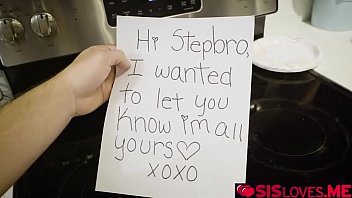 Hi Stepbro,
I wanted
to let you
Know i'm all
yours♡
xoxo
SISLOVES.ME